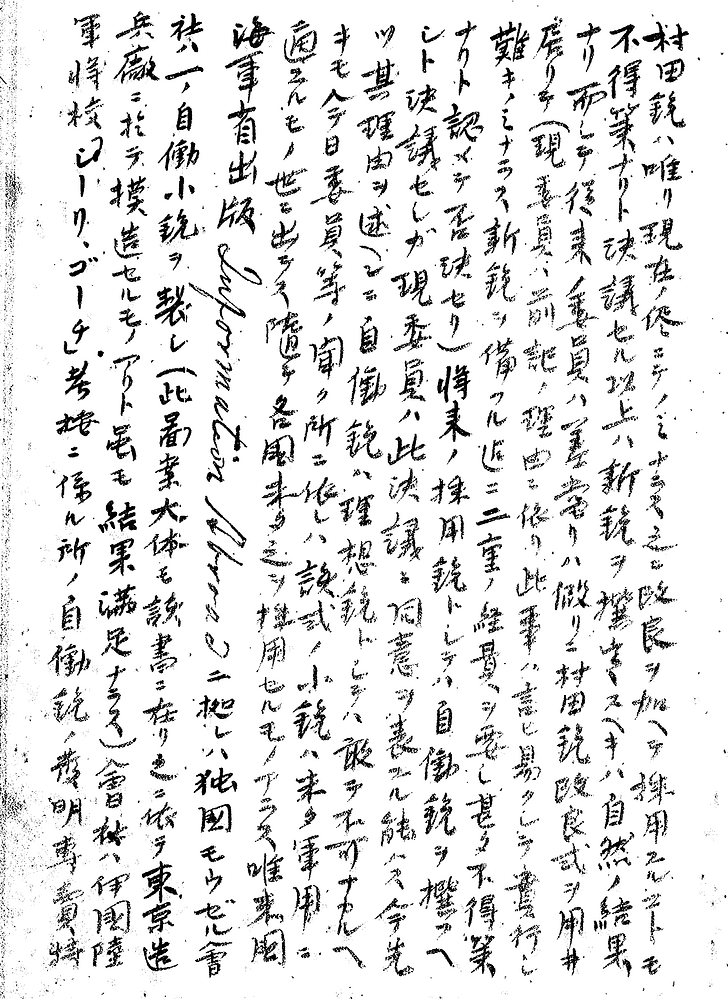 村田銃ハ唯リ現在ノ侭ニテノミナラス之ニ改良ヲ加ヘテ採用スルコトモ
不得策ナリト決議セル以上ハ新銃ヲ撰定スヘキハ自然ノ結果
ナリ而シテ従来ノ委員ハ差当リハ假リニ村田銃改良式ヲ用井
居リテ(現委員ハ前記ノ理由ニ依リ此事ハ言ヒ易クシテ実行シ
難キノミナラス新銃ヲ備フル迠ニ二重ノ経費ヲ要シ甚タ不得策
ナリト認メテ否決セリ)将来ノ採用銃トシテハ自働銃ヲ撰フヘ
シト決議セしガ現委員ハ此決議ニ同意ヲ表スル能ハス今先
ツ其理由ヲ述ヘンニ自働銃ハ理想銃トシテハ敢テ不可ナカルヘ
キモ今日委員等ノ聞ク所ニ依レハ該式ノ小銃ハ未タ軍用ニ
適スルモノ世ニ出テス隨テ各国未タ之ヲ採用セルモノアラス唯米国
海軍省出版 Information Abroad ニ拠レハ独国モウゼル會
社ハ一ノ自働小銃ヲ製シ(此圖案大体モ該書ニ在リ之ニ依テ東京造
兵廠ニ於テ模造セルモノアリト雖モ結果満足ナラス)會社ハ伊國陸
軍将校「シーリ、ゴーチ」考按ニ係ル所ノ自働銃ノ發明專賣特